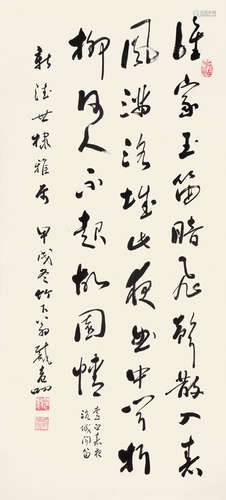 誰家玉笛暗飛聲散入春
風滿洛城此夜曲中聞折
柳何人不起故園情
李白春夜
洛城聞笛
世棣雅屬 甲戌冬竹下翁戴